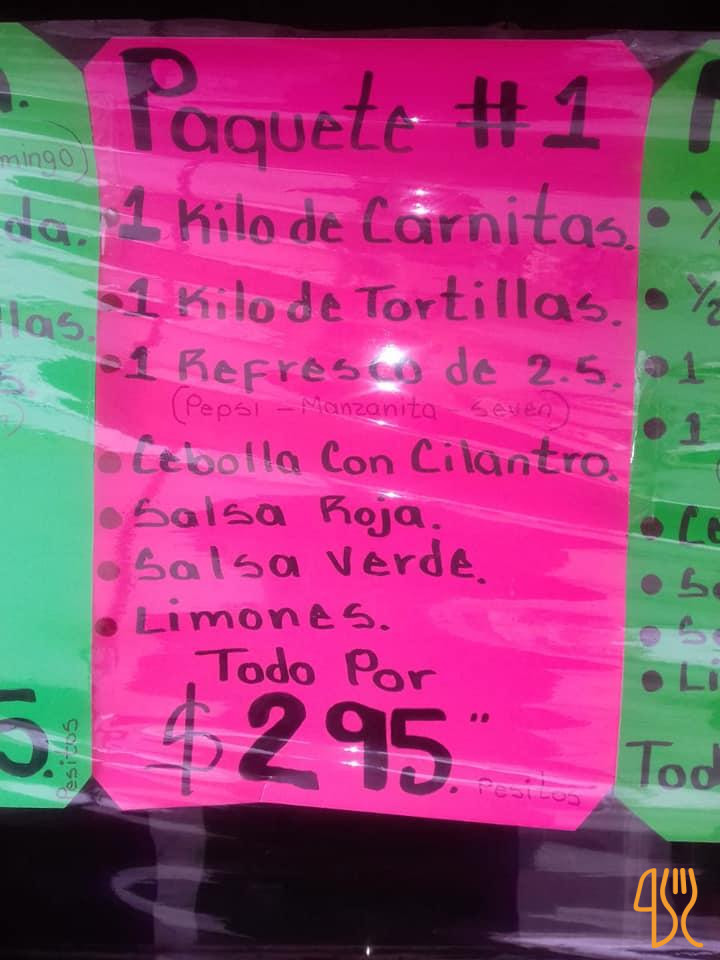 Paquete #1
• 1 Kilo de Carnitas.
• 1 Kilo de Tortillas.
• 1 Refresco de 2.5.
(Pepsi - Manzanita - Seven)
• Cebolla Con Cilantro.
• Salsa Roja.
• Salsa Verde.
• Limones.
Todo Por
$295."
Pesitos
mingo)
da.
llas.
5.
Pesitos
• 1/2
• 1
• 1
Tod